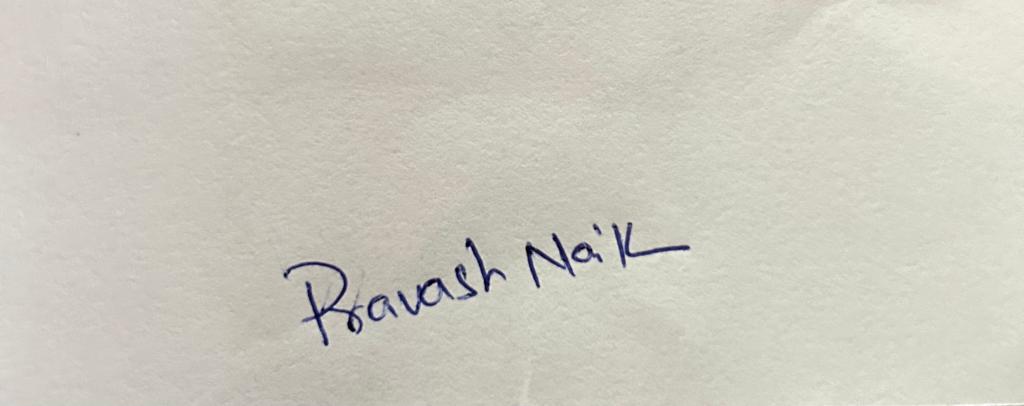 Pravash Naik